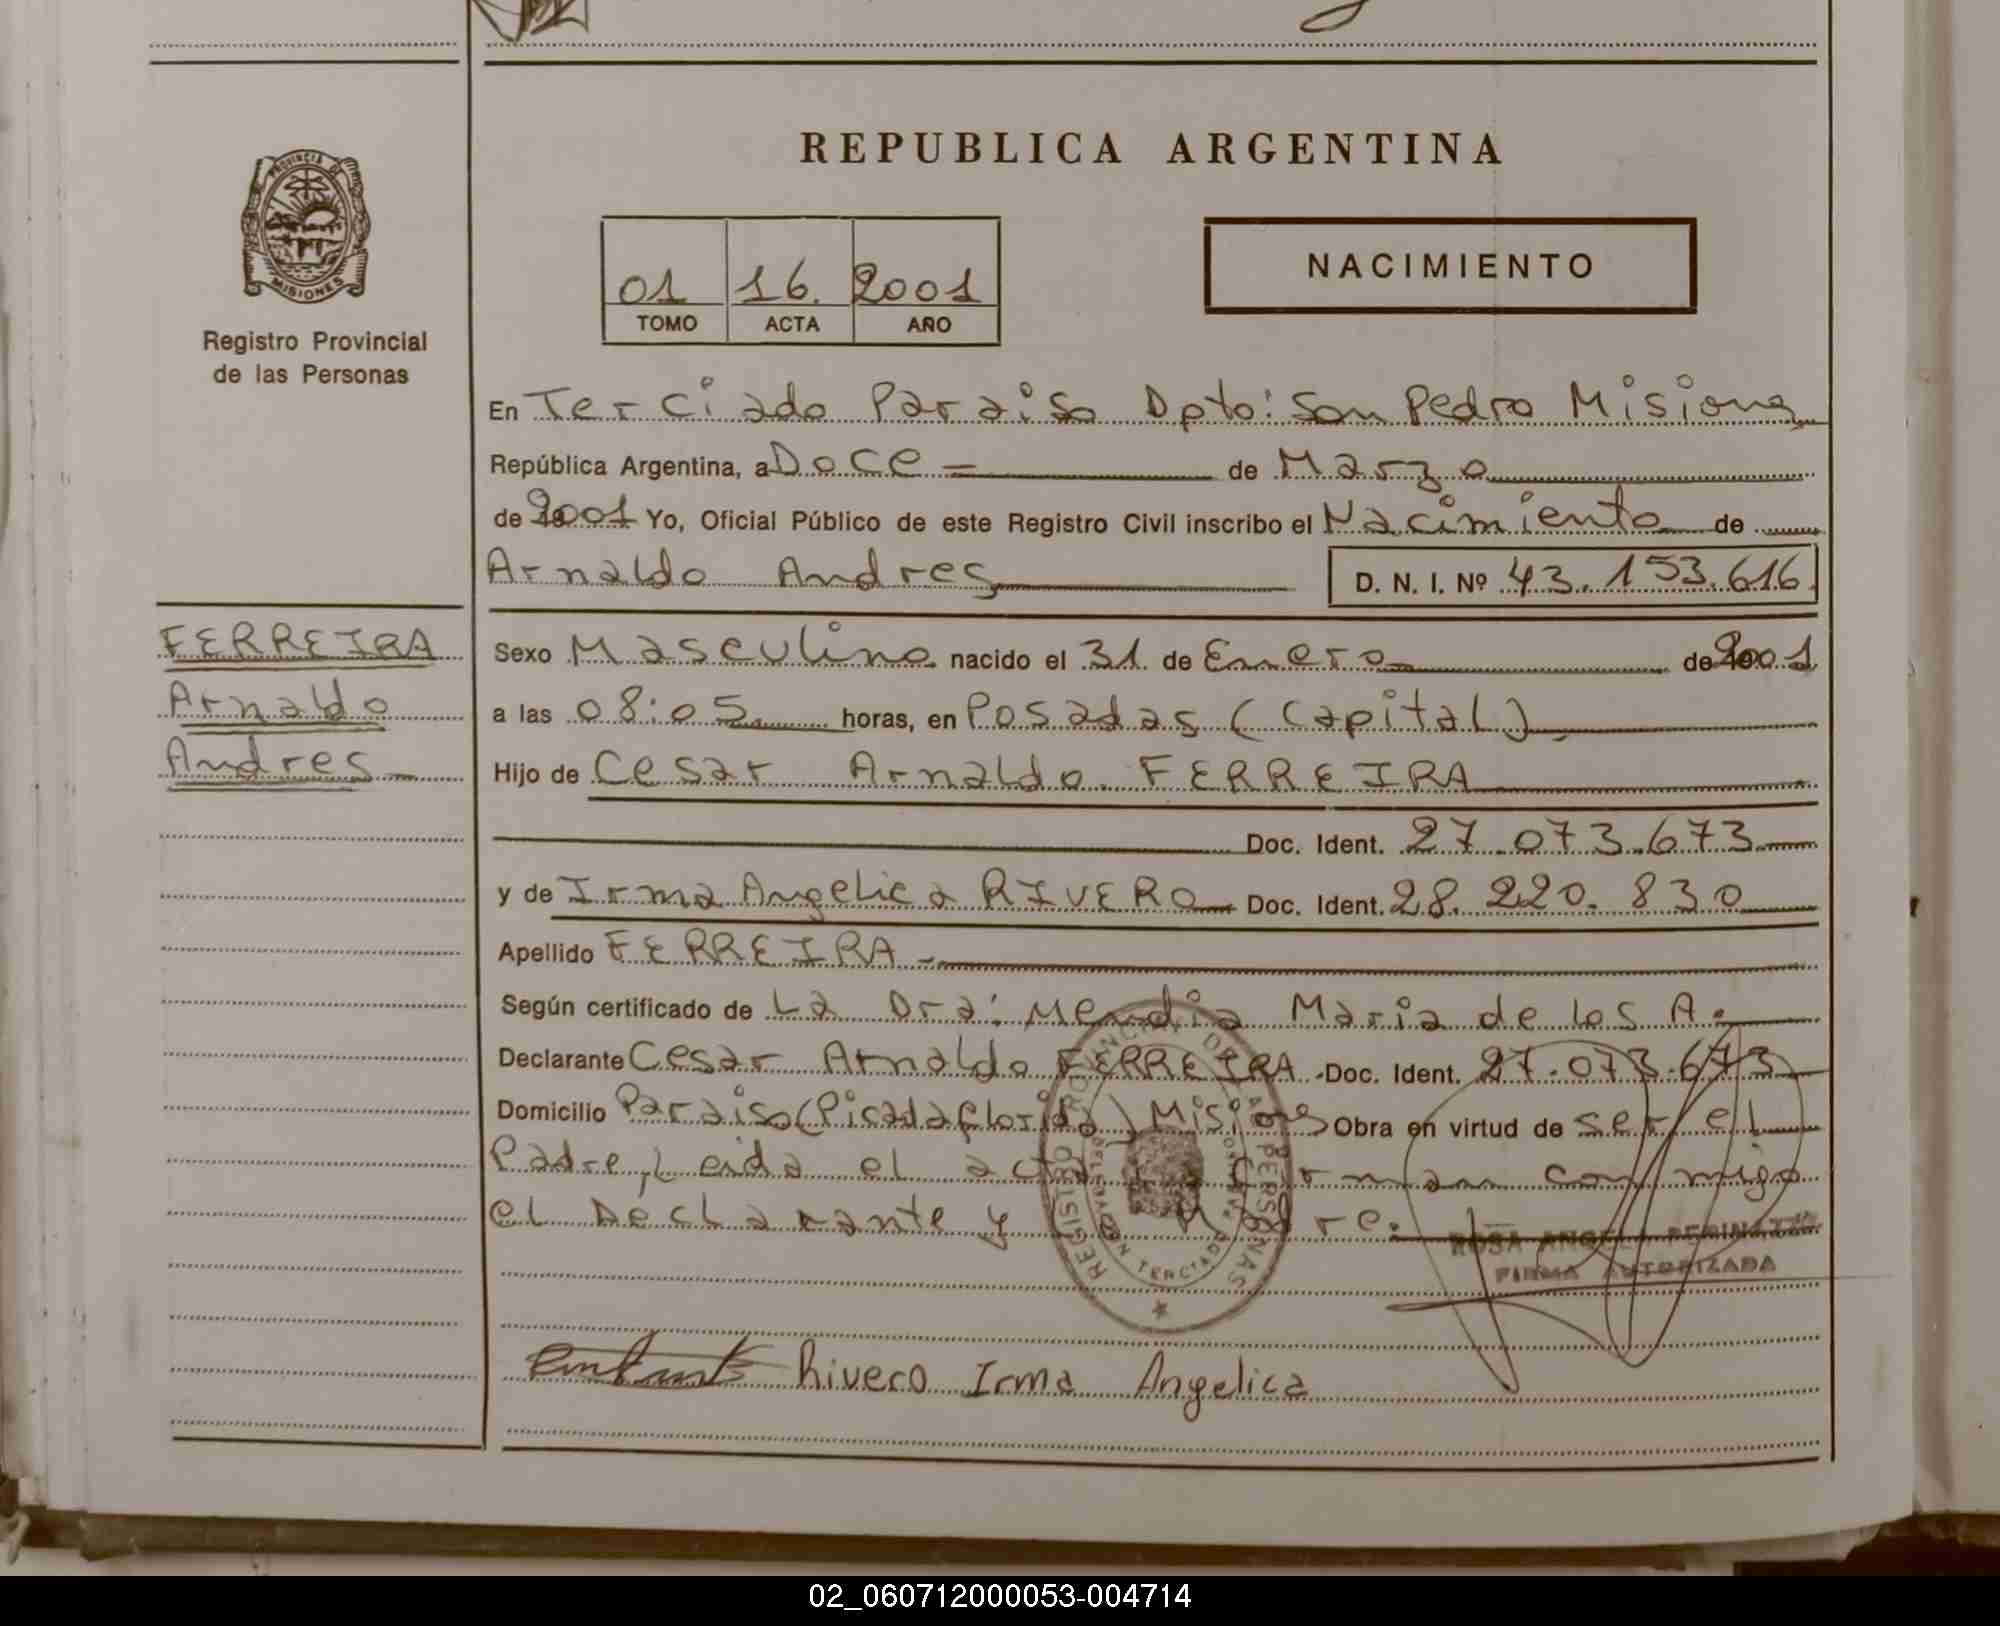 REPUBLICA ARGENTINA
PROVINCIA DE
MISIONES
Registro Provincial
de las Personas
01 16. 2001
TOMO ACTA AÑO
NACIMIENTO
En Terciado Paraiso Dpto: San Pedro Misiones
República Argentina, a Doce de Marzo
de 2001 Yo, Oficial Público de este Registro Civil inscribo el Nacimiento de
Arnaldo Andres D. N. I. Nº 43.153.616
FERREIRA
Arnaldo
Andres
Sexo Masculino nacido el 31 de Enero de 2001
a las 08:05 horas, en Posadas (Capital)
Hijo de Cesar Arnaldo FERREIRA
Doc. Ident. 27.073.673
y de Irma Angelica RIVERO Doc. Ident. 28.220.830
Apellido FERREIRA
Según certificado de La Dra: Mendia Maria de los A.
Declarante Cesar Arnaldo FERREIRA Doc. Ident. 27.073.673
Domicilio Paraiso (Picada florida) Misiones Obra en virtud de ser el
Padre, Leida el acta Firman conmigo
el Declarante y Madre.
REGISTRO PROVINCIAL DE LAS PERSONAS
TERCIADO
ROSA ANGELA
FIRMA AUTORIZADA
Rivero Irma Angelica
02_060712000053-004714